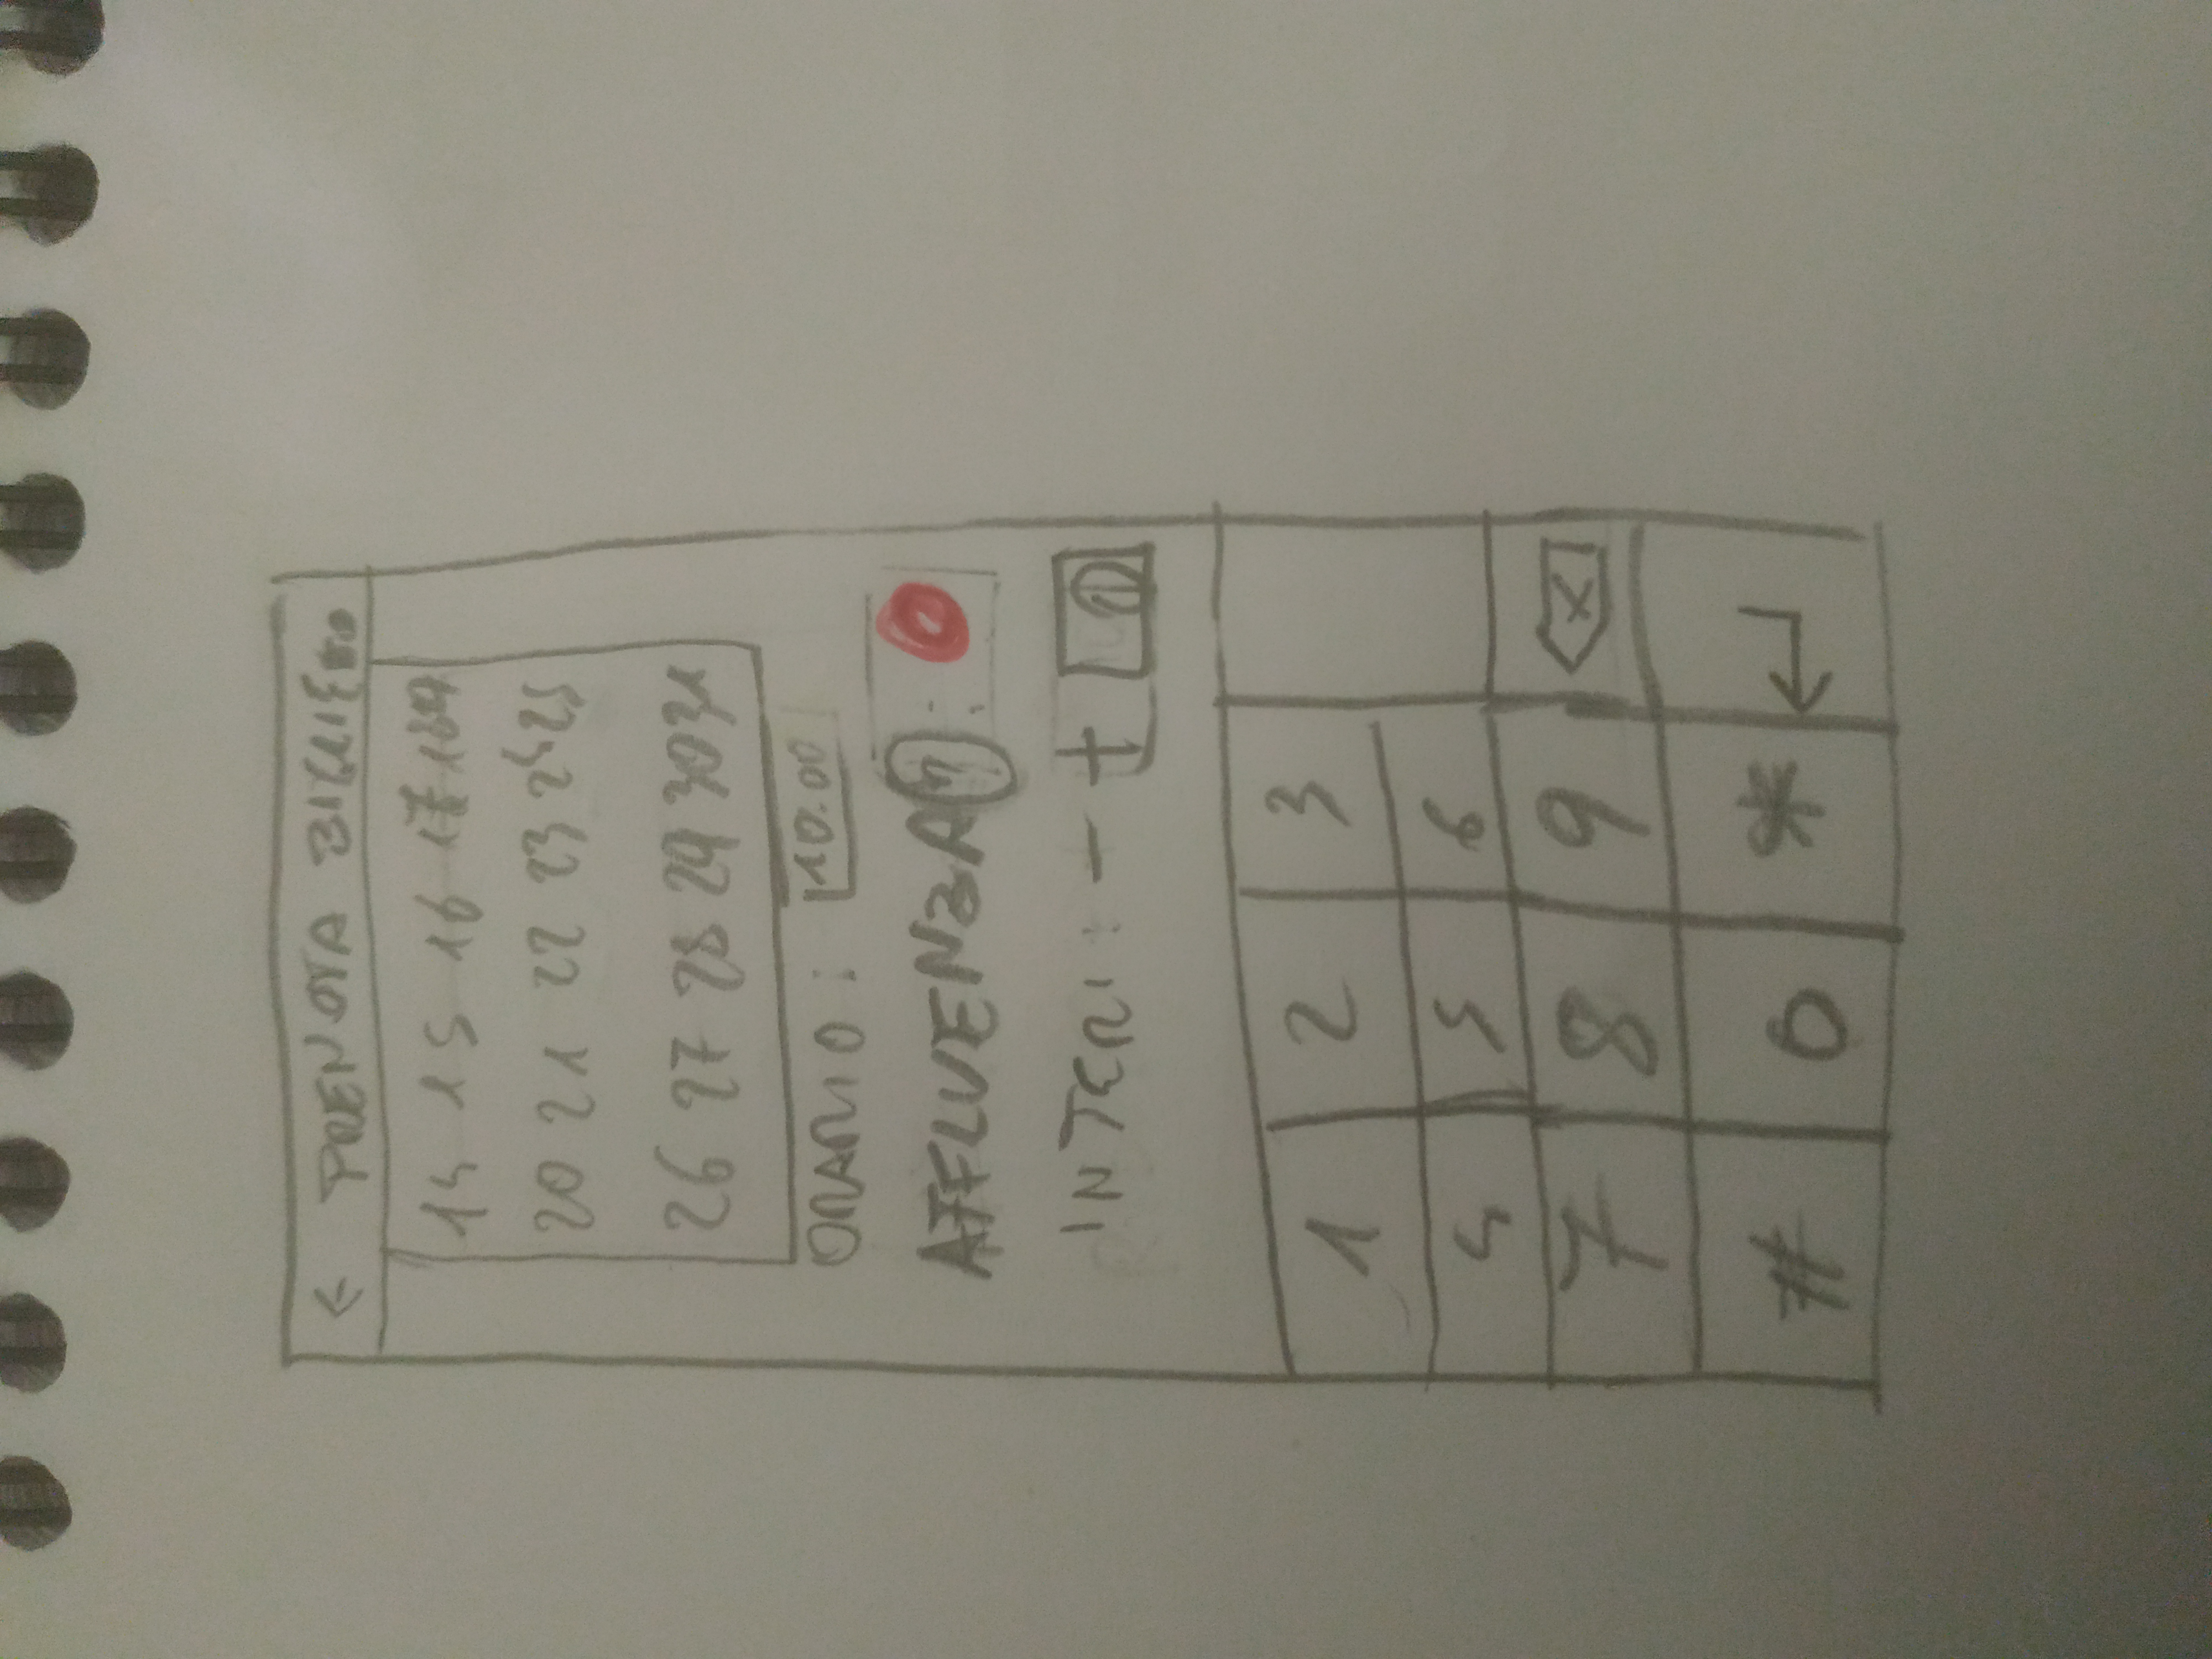 ← PRENOTA BIGLIETTO
14 15 16 17 18 19
20 21 22 23 24 25
26 27 28 29 30 31
ORARIO: 10.00
AFFLUENZA ? :
INTERI: - +
1 2 3
4 5 6
7 8 9 X
# 0 *